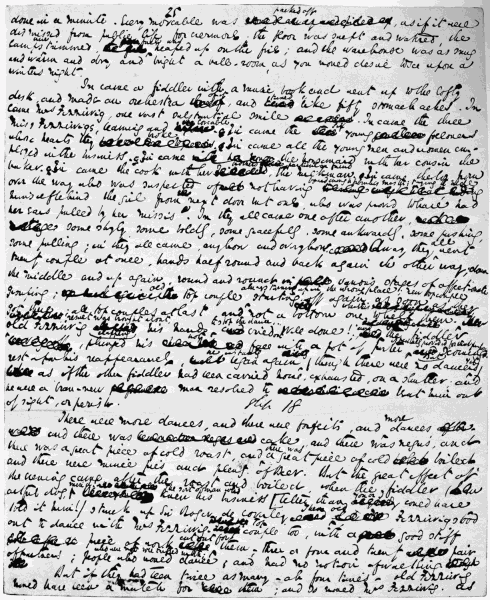 25
done in a minute. Every moveable was packed off, as if it were
dismissed from public life for evermore; the floor was swept and watered, the
lamps were trimmed, fuel was heaped up on the fire; and the warehouse was as snug
and warm and dry, and bright a ball-room as you would desire to see upon a
winter's night.
In came a fiddler with a music book and went up to the lofty
desk and made an orchestra of it, and tuned like fifty stomach aches. In
came Mrs Fezziwig, one vast substantial smile. In came the three
Miss Fezziwigs, beaming and lovable. In came the six young followers
whose hearts they broke. In came all the young men and women em-
ployed in the business. In came the housemaid with her cousin the
baker. In came the cook with her brother's particular friend, the milkman. In came the boy from
over the way, who was suspected of not having board enough from his master; trying to hide
himself behind the girl from next door but one, who was proved to have had
her ears pulled by her missis. In they all came one after another;
some shyly, some boldly, some gracefully, some awkwardly, some pushing,
some pulling; in they all came, anyhow and everyhow. Away they all went
twenty couple at once, hands half round and back again the other way, down
the middle and up again, round and round in various stages of affectionate
grouping; old top couple always turning up in the wrong place; new top couple
starting off again, as soon as they got there;
all top couples at last, and not a bottom one to help them.
old Fezziwig clapping his hands to stop the dance, cried out "Well done!"
and the fiddler plunged his hot face into a pot of porter especially provided for that purpose. But scorning
rest upon his reappearance, he instantly began again (though there were no dancers yet)
as if the other fiddler had been carried home, exhausted, on a shutter; and
he were a bran-new man resolved to beat him out
of sight, or perish.
There were more dances, and there were forfeits, and more dances
and there was cake, and there was negus, and
there was a great piece of cold roast, and there was a great piece of cold boiled
and there were mince pies and plenty of beer. But the great effect of
the evening came after the roast and boiled when the fiddler (an
artful dog, mind! The sort of man who knew his business better than you or I could have
told it him!) struck up Sir Roger de Coverley. Then old Fezziwig stood
out to dance with Mrs Fezziwig. Top couple too, with a good stiff
piece of work cut out for them; three or four and twenty pair
of partners; people who were not to be trifled with; people who would dance; and had no notion of walking.
But if they had been twice as many—ah four times—old Fezziwig
would have been a match for them; and so would Mrs Fezziwig. As